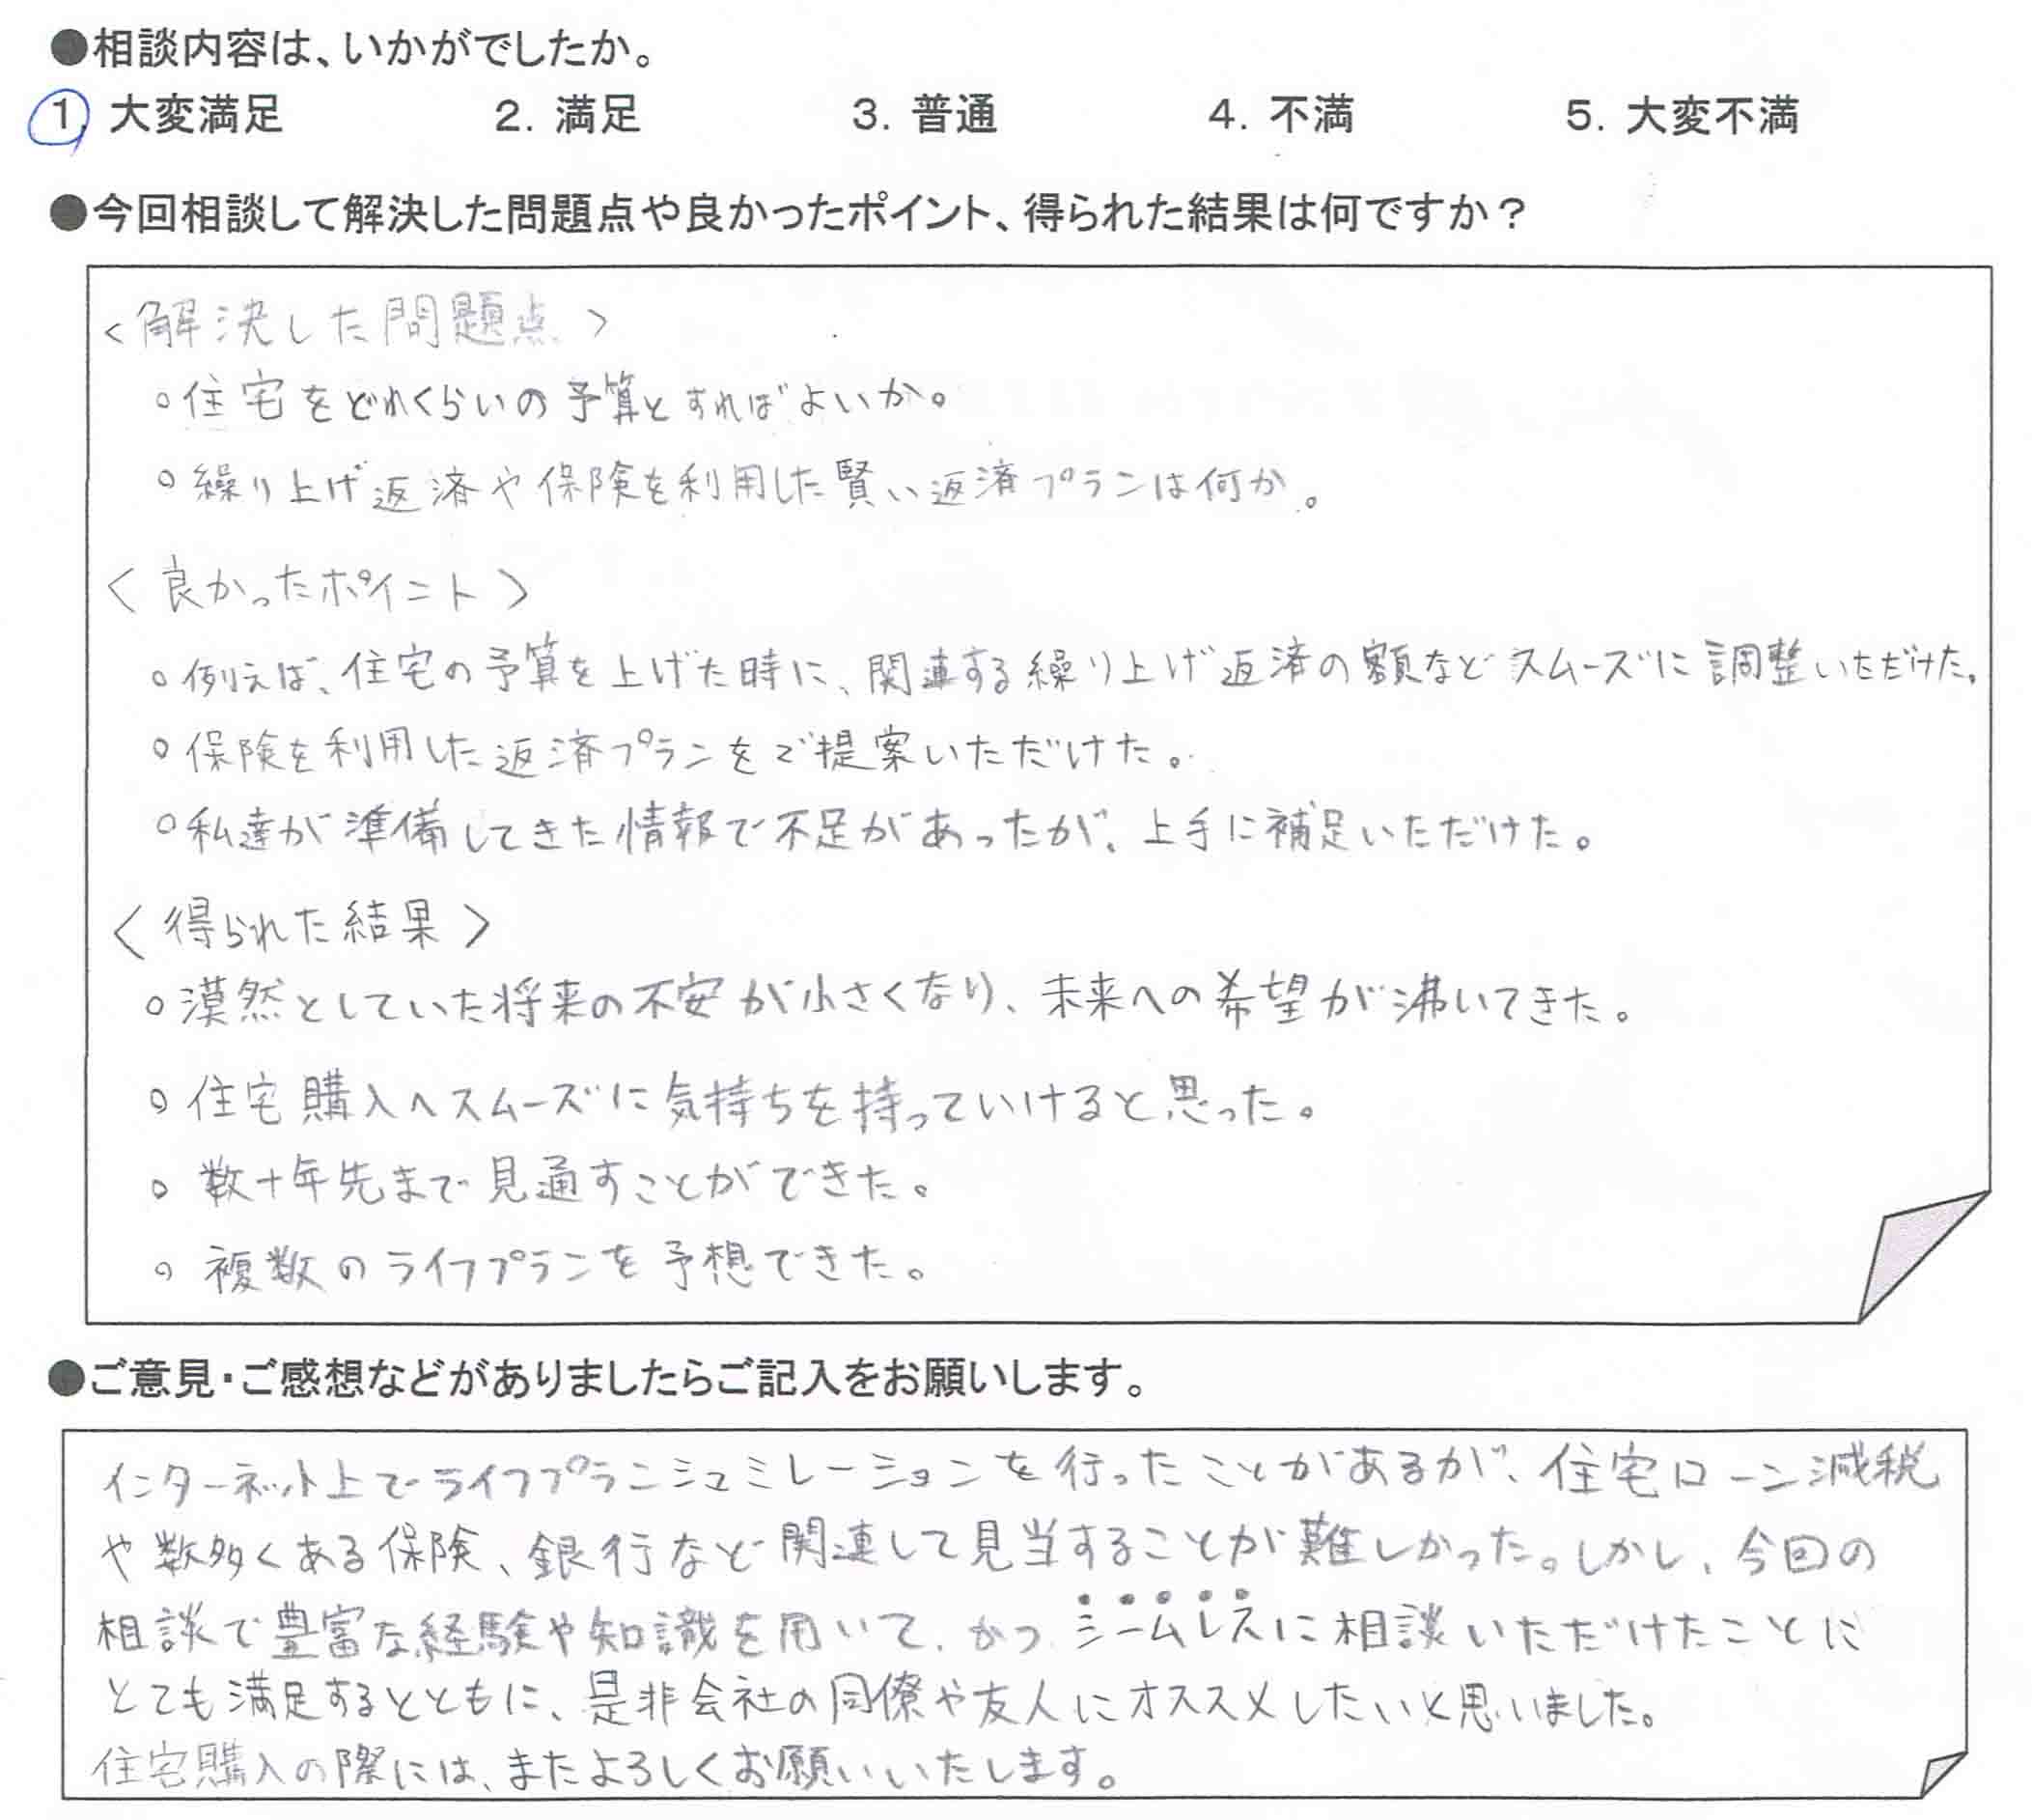 ●相談内容は、いかがでしたか。
1. 大変満足 2. 満足 3. 普通 4. 不満 5. 大変不満
●今回相談して解決した問題点や良かったポイント、得られた結果は何ですか？
<解決した問題点>
○住宅をどれくらいの予算とすればよいか。
○繰り上げ返済や保険を利用した賢い返済プランは何か。
<良かったポイント>
○例えば、住宅の予算を上げた時に、関連する繰り上げ返済の額などスムーズに調整いただけた。
○保険を利用した返済プランをご提案いただけた。
○私達が準備してきた情報で不足があったが、上手に補足いただけた。
<得られた結果>
○漠然としていた将来の不安が小さくなり、未来への希望が沸いてきた。
○住宅購入へスムーズに気持ちを持っていけると思った。
○数十年先まで見通すことができた。
○複数のライフプランを予想できた。
●ご意見・ご感想などがありましたらご記入をお願いします。
インターネット上でライフプランシュミレーションを行ったことがあるが、住宅ローン減税
や数多くある保険、銀行など関連して見当することが難しかった。しかし、今回の
相談で豊富な経験や知識を用いて、かつ、シームレスに相談いただけたことに
とても満足するとともに、是非会社の同僚や友人にオススメしたいと思いました。
住宅購入の際には、またよろしくお願いいたします。